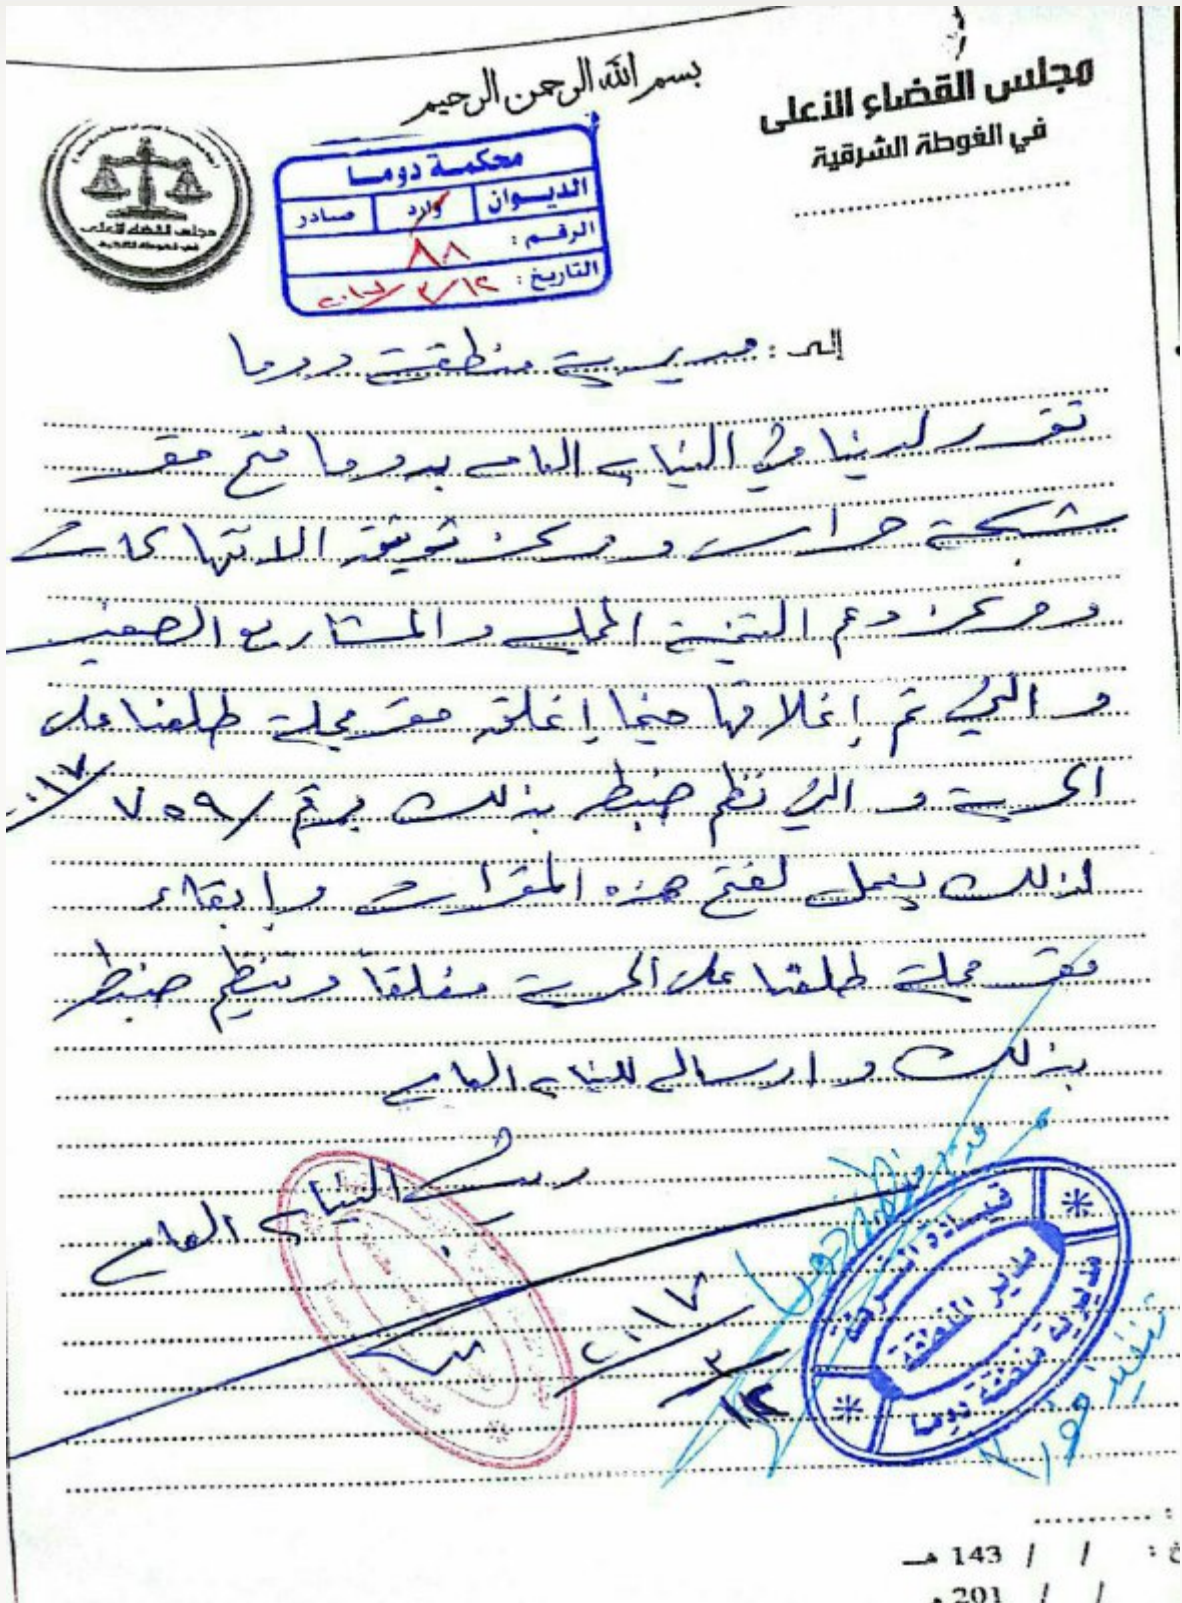 بسم الله الرحمن الرحيم
مجلس القضاء الأعلى
في الغوطة الشرقية
مجلس القضاء الأعلى
في الغوطة الشرقية
محكمة دوما
الديوان وارد صادر
الرقم : ٨٨
التاريخ : ١٢/٣/٢٠١٧
إلى : مديرية منطقة دوما
تقرر لدينا في النيابة العامة بدوما فتح مقر
شبكة حراس ومركز توثيق الانتهاكات
ومركز دعم التنمية المحلية والمشاريع الصغيرة
والتي تم إغلاقها حينما إغلق مقر مجلة طلعنا على
الحرية والتي نظم ضبط بذلك برقم / ٧٥٩ / ٢٠١٧
لذلك يعمل لفتح هذه المقرات وإبقاء
مقر مجلة طلعنا على الحرية مغلقاً وتنظيم ضبط
بذلك وارساله للنيابة العامة
رئيس النيابة العامة
٢٠١٧
٣
١٢
مدير منطقة دوما
قيادة الشرطة
مدير المنطقة
مديرية منطقة دوما
/ / 143 هـ
/ / 201 م